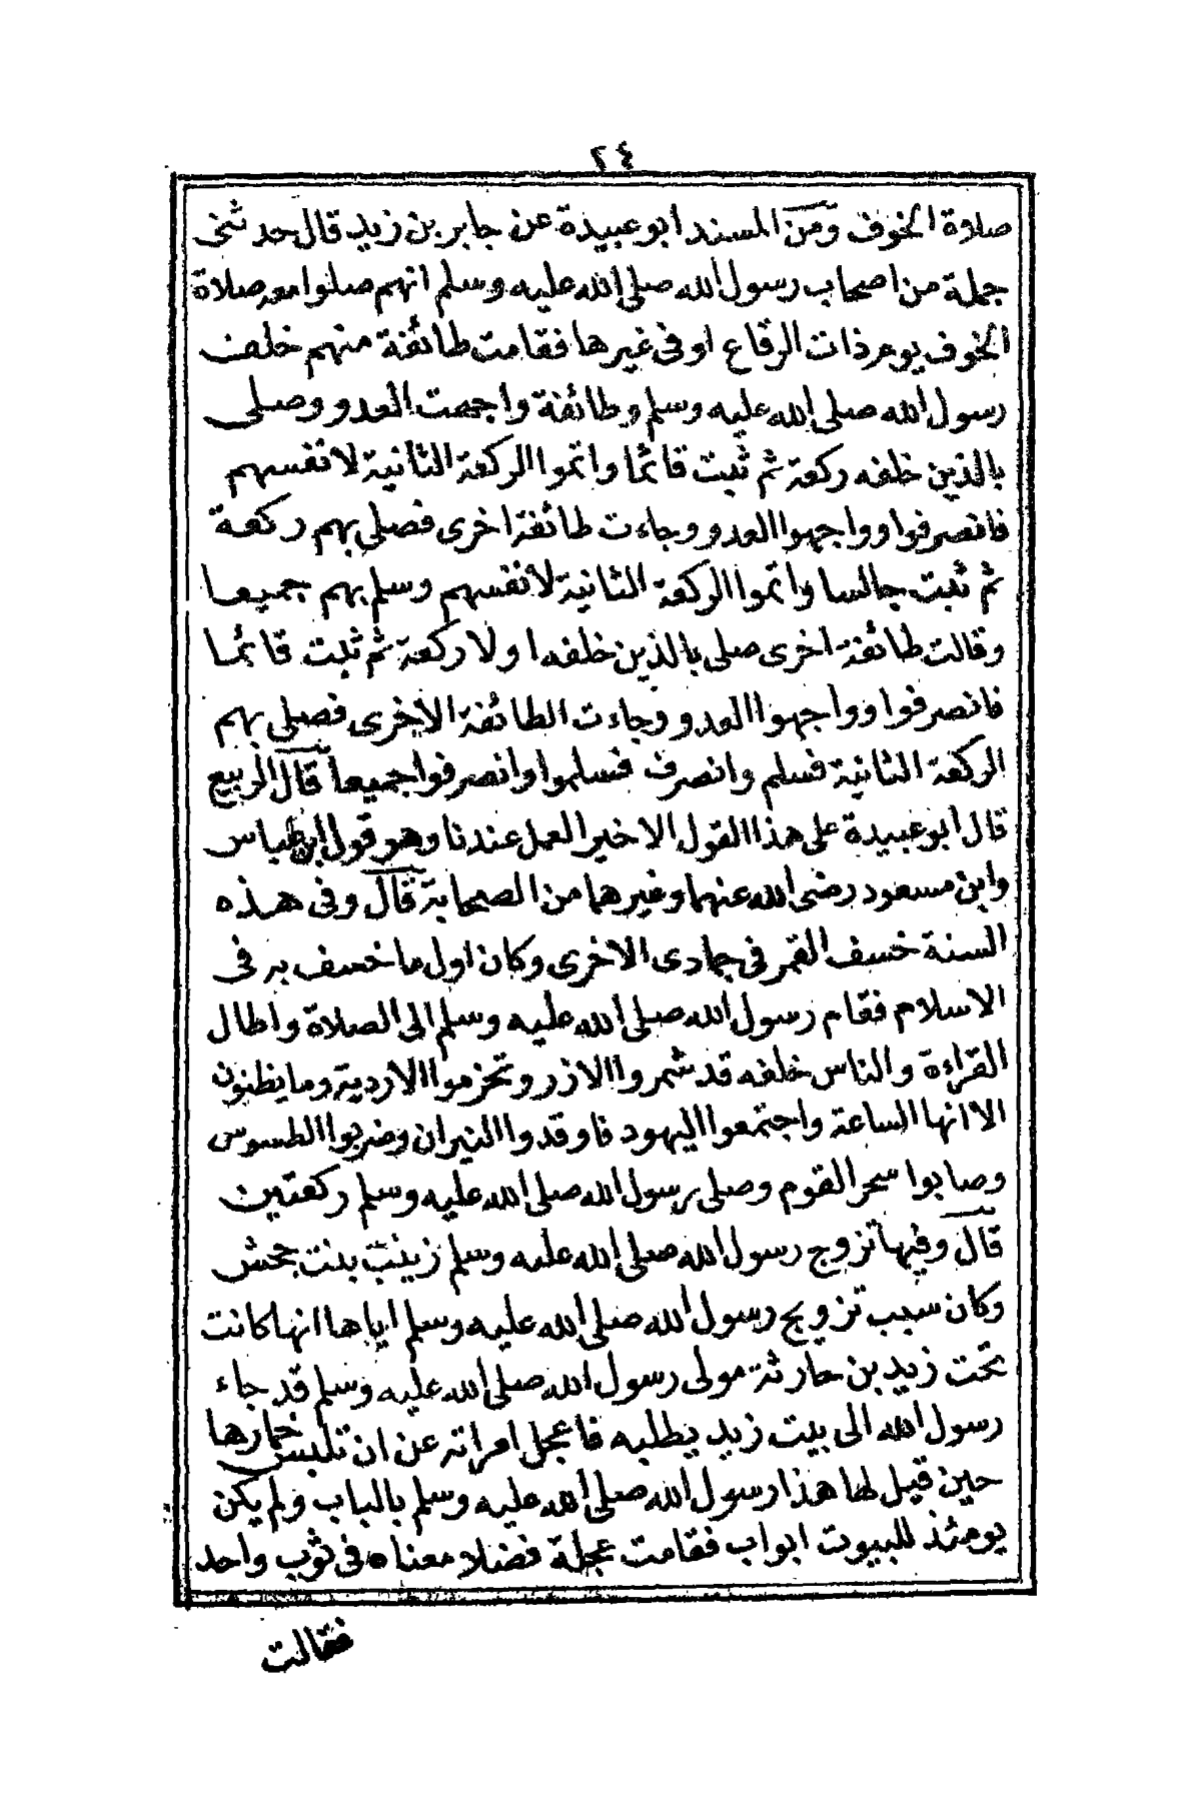 ٢٤
صلاة الخوف ومن المسند ابو عبيدة عن جابر بن زيد قال حدثنى
جملة من اصحاب رسول الله صلى الله عليه وسلم انهم صلوا معه صلاة
الخوف يوم ذات الرقاع او فى غيرها فقامت طائفة منهم خلف
رسول الله صلى الله عليه وسلم وطائفة واجهت العدو وصلى
بالذين خلفه ركعة ثم ثبت قائما واتموا الركعة الثانية لانفسهم
فانصرفوا وواجهوا العدو وجاءت طائفة اخرى فصلى بهم ركعة
ثم ثبت جالسا واتموا الركعة الثانية لانفسهم وسلم بهم جميعا
وقالت طائفة اخرى صلى بالذين خلفه اولا ركعة ثم ثبت قائما
فانصرفوا وواجهوا العدو وجاءت الطائفة الاخرى فصلى بهم
الركعة الثانية فسلم وانصرف فسلموا وانصرفوا جميعا قال الربيع
قال ابو عبيدة على هذا القول الاخير العمل عندنا وهو قول ابن عباس
وابن مسعود رضى الله عنهما وغيرهما من الصحابة قال وفى هذه
السنة خسف القمر فى جمادى الاخرى وكان اول ما خسف به فى
الاسلام فقام رسول الله صلى الله عليه وسلم الى الصلاة واطال
القراءة والناس خلفه قد شمروا الازر وتحزموا الاردية وما يظنون
الا انها الساعة واجتمعوا اليهود فاوقدوا النيران وضربوا الطسوس
وصابوا سحر القوم وصلى رسول الله صلى الله عليه وسلم ركعتين
قال وفيها تزوج رسول الله صلى الله عليه وسلم زينب بنت جحش
وكان سبب تزويج رسول الله صلى الله عليه وسلم اياها انها كانت
تحت زيد بن حارثة مولى رسول الله صلى الله عليه وسلم قد جاء
رسول الله الى بيت زيد يطلبه فاعجل امراته عن ان تلبس خمارها
حين قيل لها هذا رسول الله صلى الله عليه وسلم بالباب ولم يكن
يومئذ للبيوت ابواب فقامت عجلة فضلا معناه فى ثوب واحد
فقالت